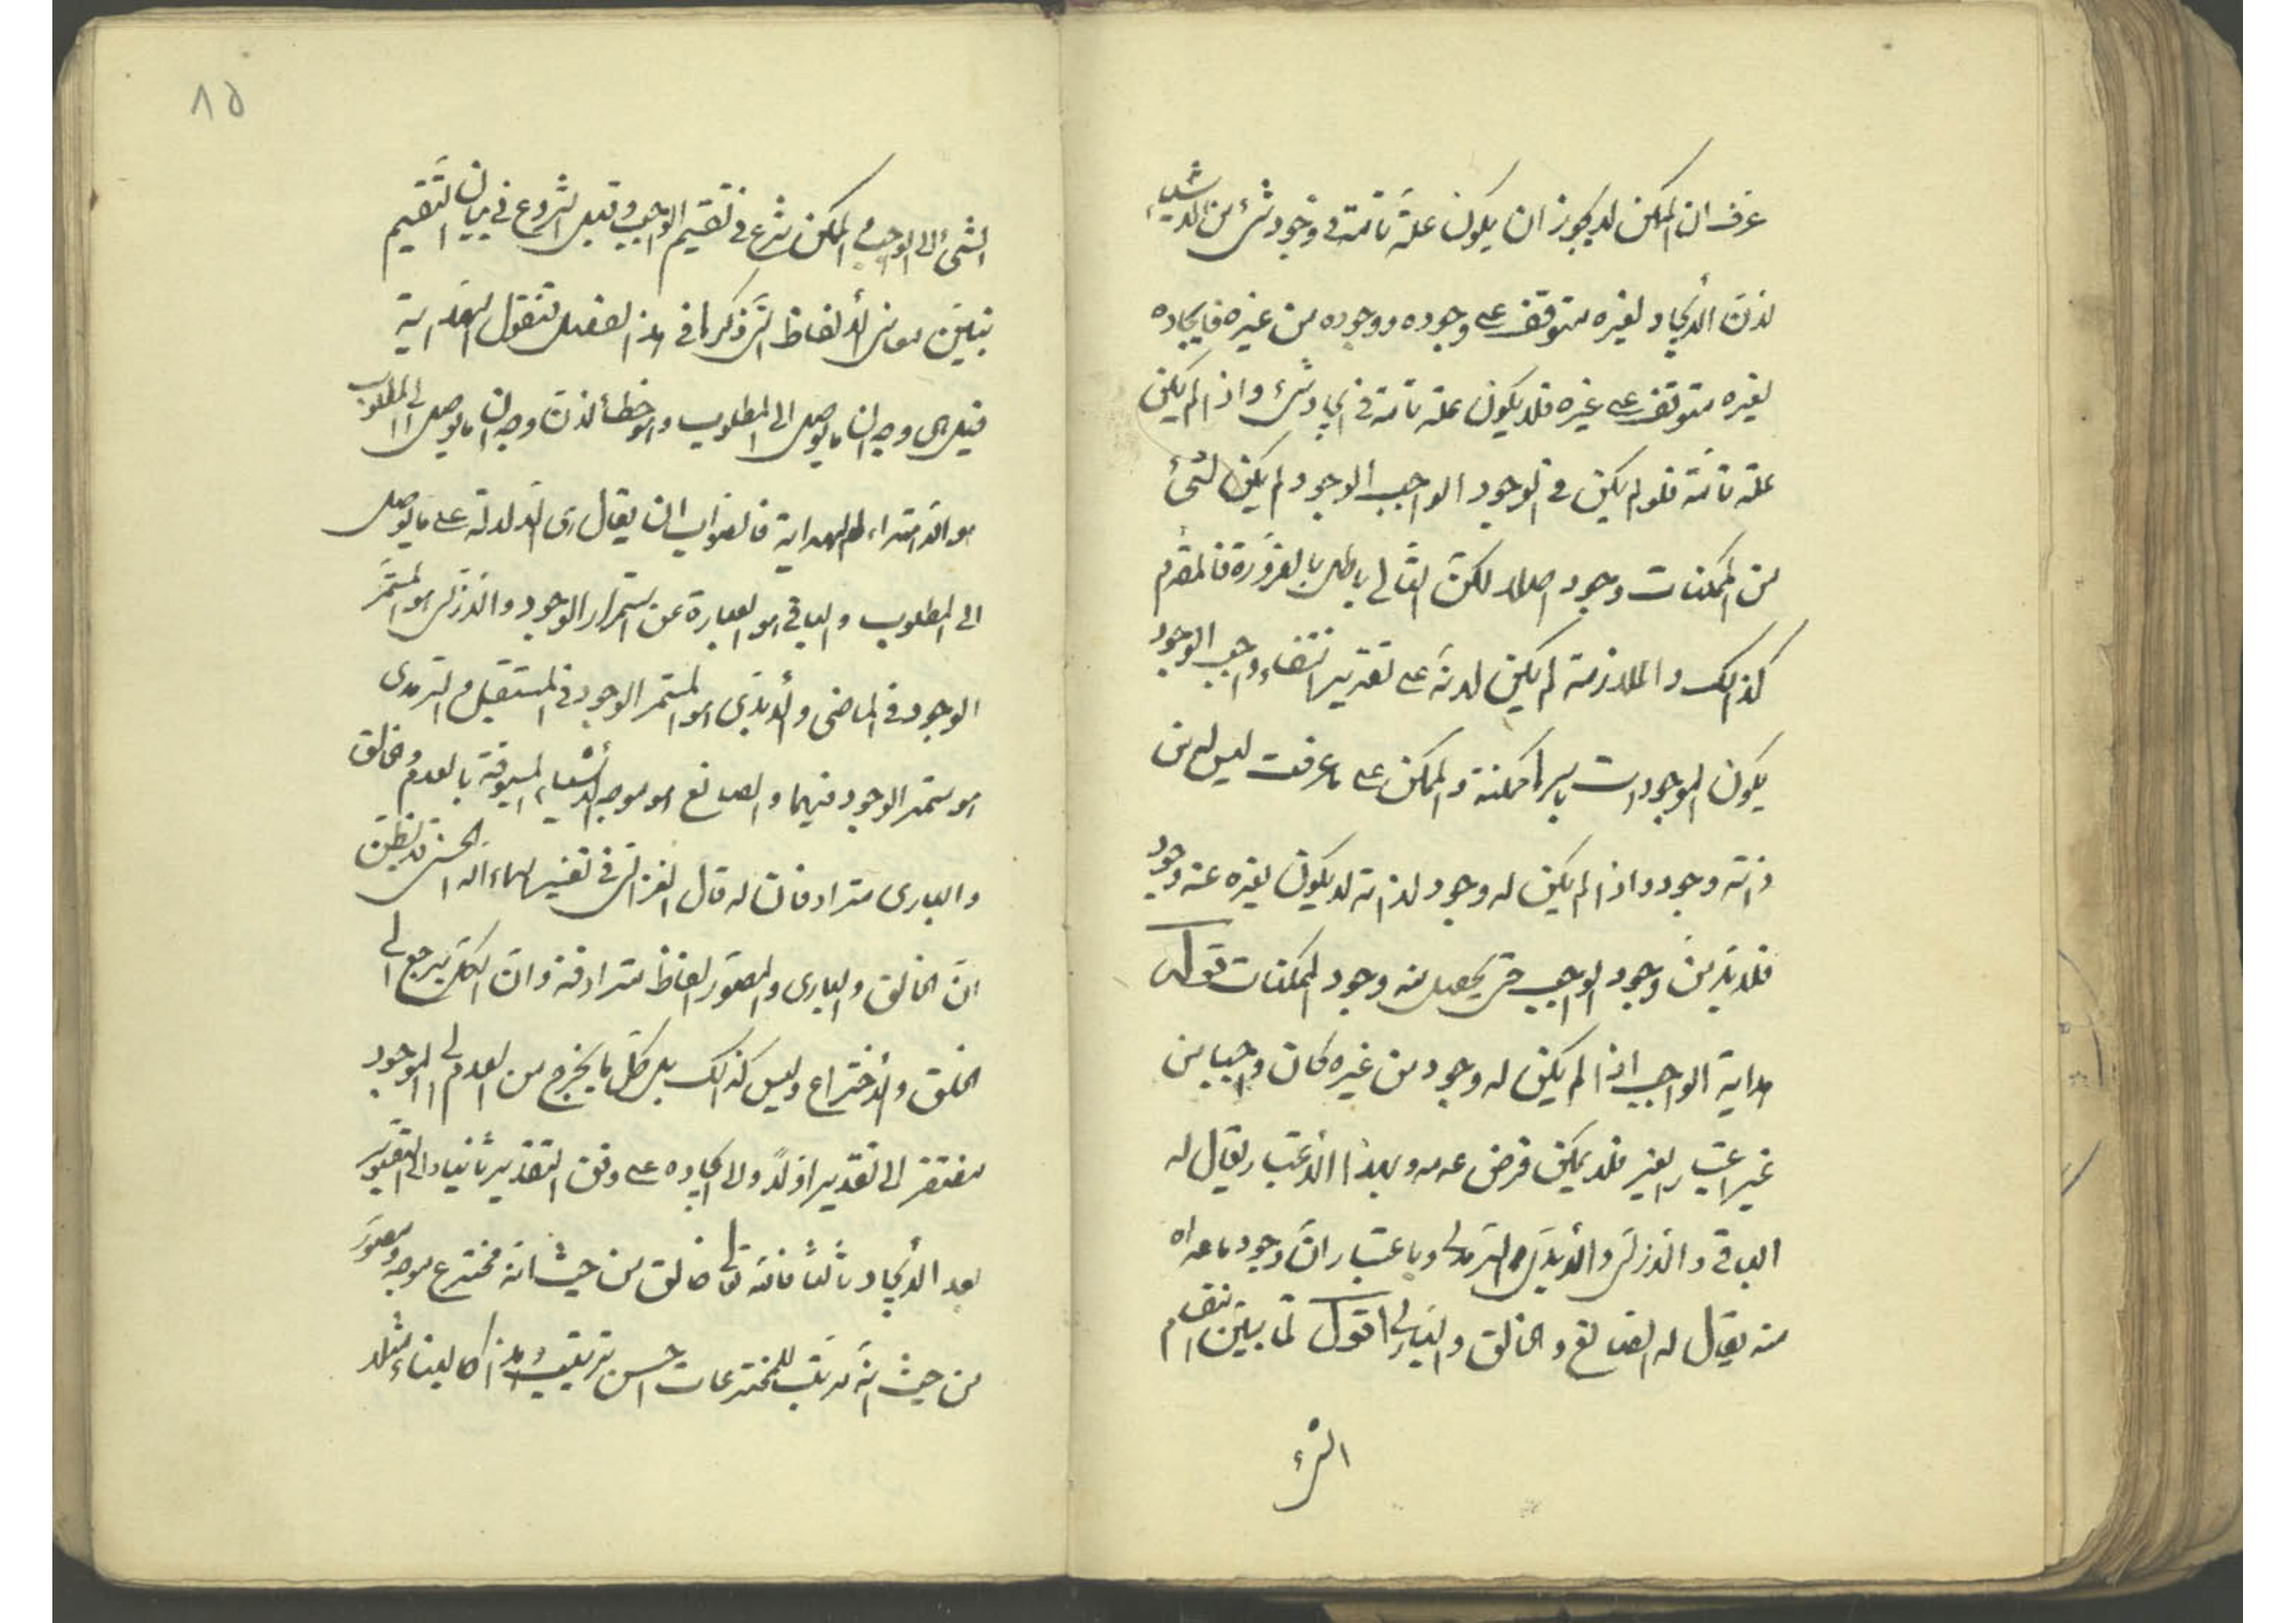 عرفت ان الممكن لا يجوز ان يكون علة تامة فى وجود شئ من الاشياء
لانّ الأيجاد لغيره متوقف على وجوده ووجوده من غيره فايجاده
لغيره متوقف على غيره فلا يكون علة تامة فى ايجاد شئ واذا لم يكن
علة تامّة فلو لم يكن فى الوجود الواجب الوجود لم يكن لشئ
من الممكنات وجود اصلا لكنّ التّالى باطل بالضّرورة فالمقدّم
كذلك والملازمة لم يكن لانّه على تقدير انتفاء واجب الوجود
يكون الموجودات باسرها ممكنة والممكن على ما عرفت ليس له من
ذاته وجود واذا لم يكن له وجود لذاته لا يكون لغيره عنه وجود
فلا بدّ من وجود الواجب حتى يحصل منه وجود الممكنات قوله
هداية الواجب اذا لم يكن له وجود من غيره كان واجبا من
غير اعتبار الغير فلا يمكن فرض عدمه وبهذا الأعتبار يقال له
الباقى والازلىّ والأبدىّ والسّرمدى وباعتبار انّ وجود ما عداه
منه يقال له الصّانع والخالق والبارى اقول لمّا بيّن انقسام
الشئ
١٥
الشئ الى الواجب والممكن شرع فى تقسيم الواجب وقبل الشروع فى بيان التّقسيم
نبيّن معانى الألفاظ الّتى ذكرها فى هذا الفصل فنقول الهداية
قيل هى وجدان ما يوصل الى المطلوب وهو خطأ لانّ وجدان ما يوصل الى المطلوب
هو الاهتداء لا الهداية فالصّواب ان يقال هى الدّلالة على ما يوصل
الى المطلوب والباقى هو العبارة عن استمرار الوجود والازلى هو المستمّر
الوجود فى الماضى والأبدىّ هو المستمر الوجود فى المستقبل والسّرمدى
هو مستمر الوجود فيهما والصانع هو موجد الأشياء المسبوقة بالعدم والخالق
والبارى مترادفان له قال الغزالى فى تفسير اسماء اللّه الحسنى قد يظنّ
انّ الخالق والبارى والمصوّر الفاظ مترادفة وانّ الكلّ يرجع الى
الخلق والأختراع وليس كذلك بل كلّ ما يخرج من العدم الى الموجود
مفتقر الى تقدير اوّلاً والى ايجاده على وفق التقدير ثانيا والى التّصوير
بعد الأيجاد ثالثاً فانّه تعالى خالق من حيث انه مخترع موجد ومصوّر
من حيث انّه مرتّب للمخترعات احسن ترتيب وهذا كالبناء مثلا